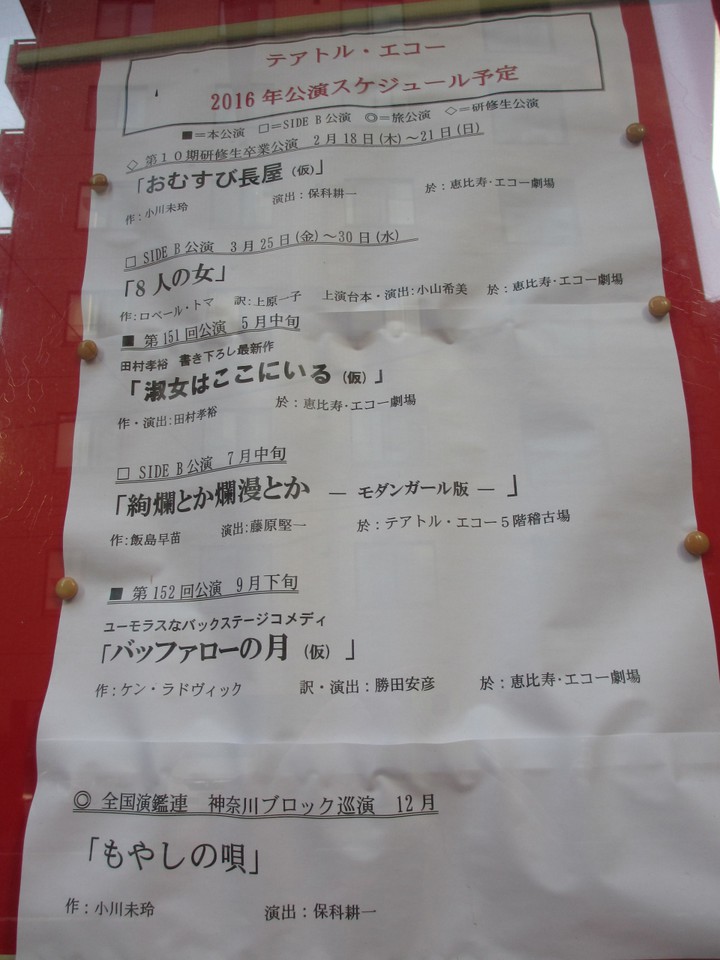 テアトル・エコー
2016年公演スケジュール予定
■=本公演 □=SIDE B公演 ◎=旅公演 ◇=研修生公演
◇ 第10期研修生卒業公演 2月18日(木)~21日(日)
「おむすび長屋(仮)」
作:小川未玲 演出:保科耕一 於:恵比寿・エコー劇場
□ SIDE B公演 3月25日(金)~30日(水)
「8人の女」
作:ロベール・トマ 訳:上原一子 上演台本・演出:小山希美 於:恵比寿・エコー劇場
■ 第151回公演 5月中旬
田村孝裕 書き下ろし最新作
「淑女はここにいる(仮)」
作・演出:田村孝裕 於:恵比寿・エコー劇場
□ SIDE B公演 7月中旬
「絢爛とか爛漫とか ― モダンガール版 ― 」
作:飯島早苗 演出:藤原堅一 於:テアトル・エコー5階稽古場
■ 第152回公演 9月下旬
ユーモラスなバックステージコメディ
「バッファローの月(仮) 」
作:ケン・ラドヴィック 訳・演出:勝田安彦 於:恵比寿・エコー劇場
◎ 全国演鑑連 神奈川ブロック巡演 12月
「もやしの唄」
作:小川未玲 演出:保科耕一